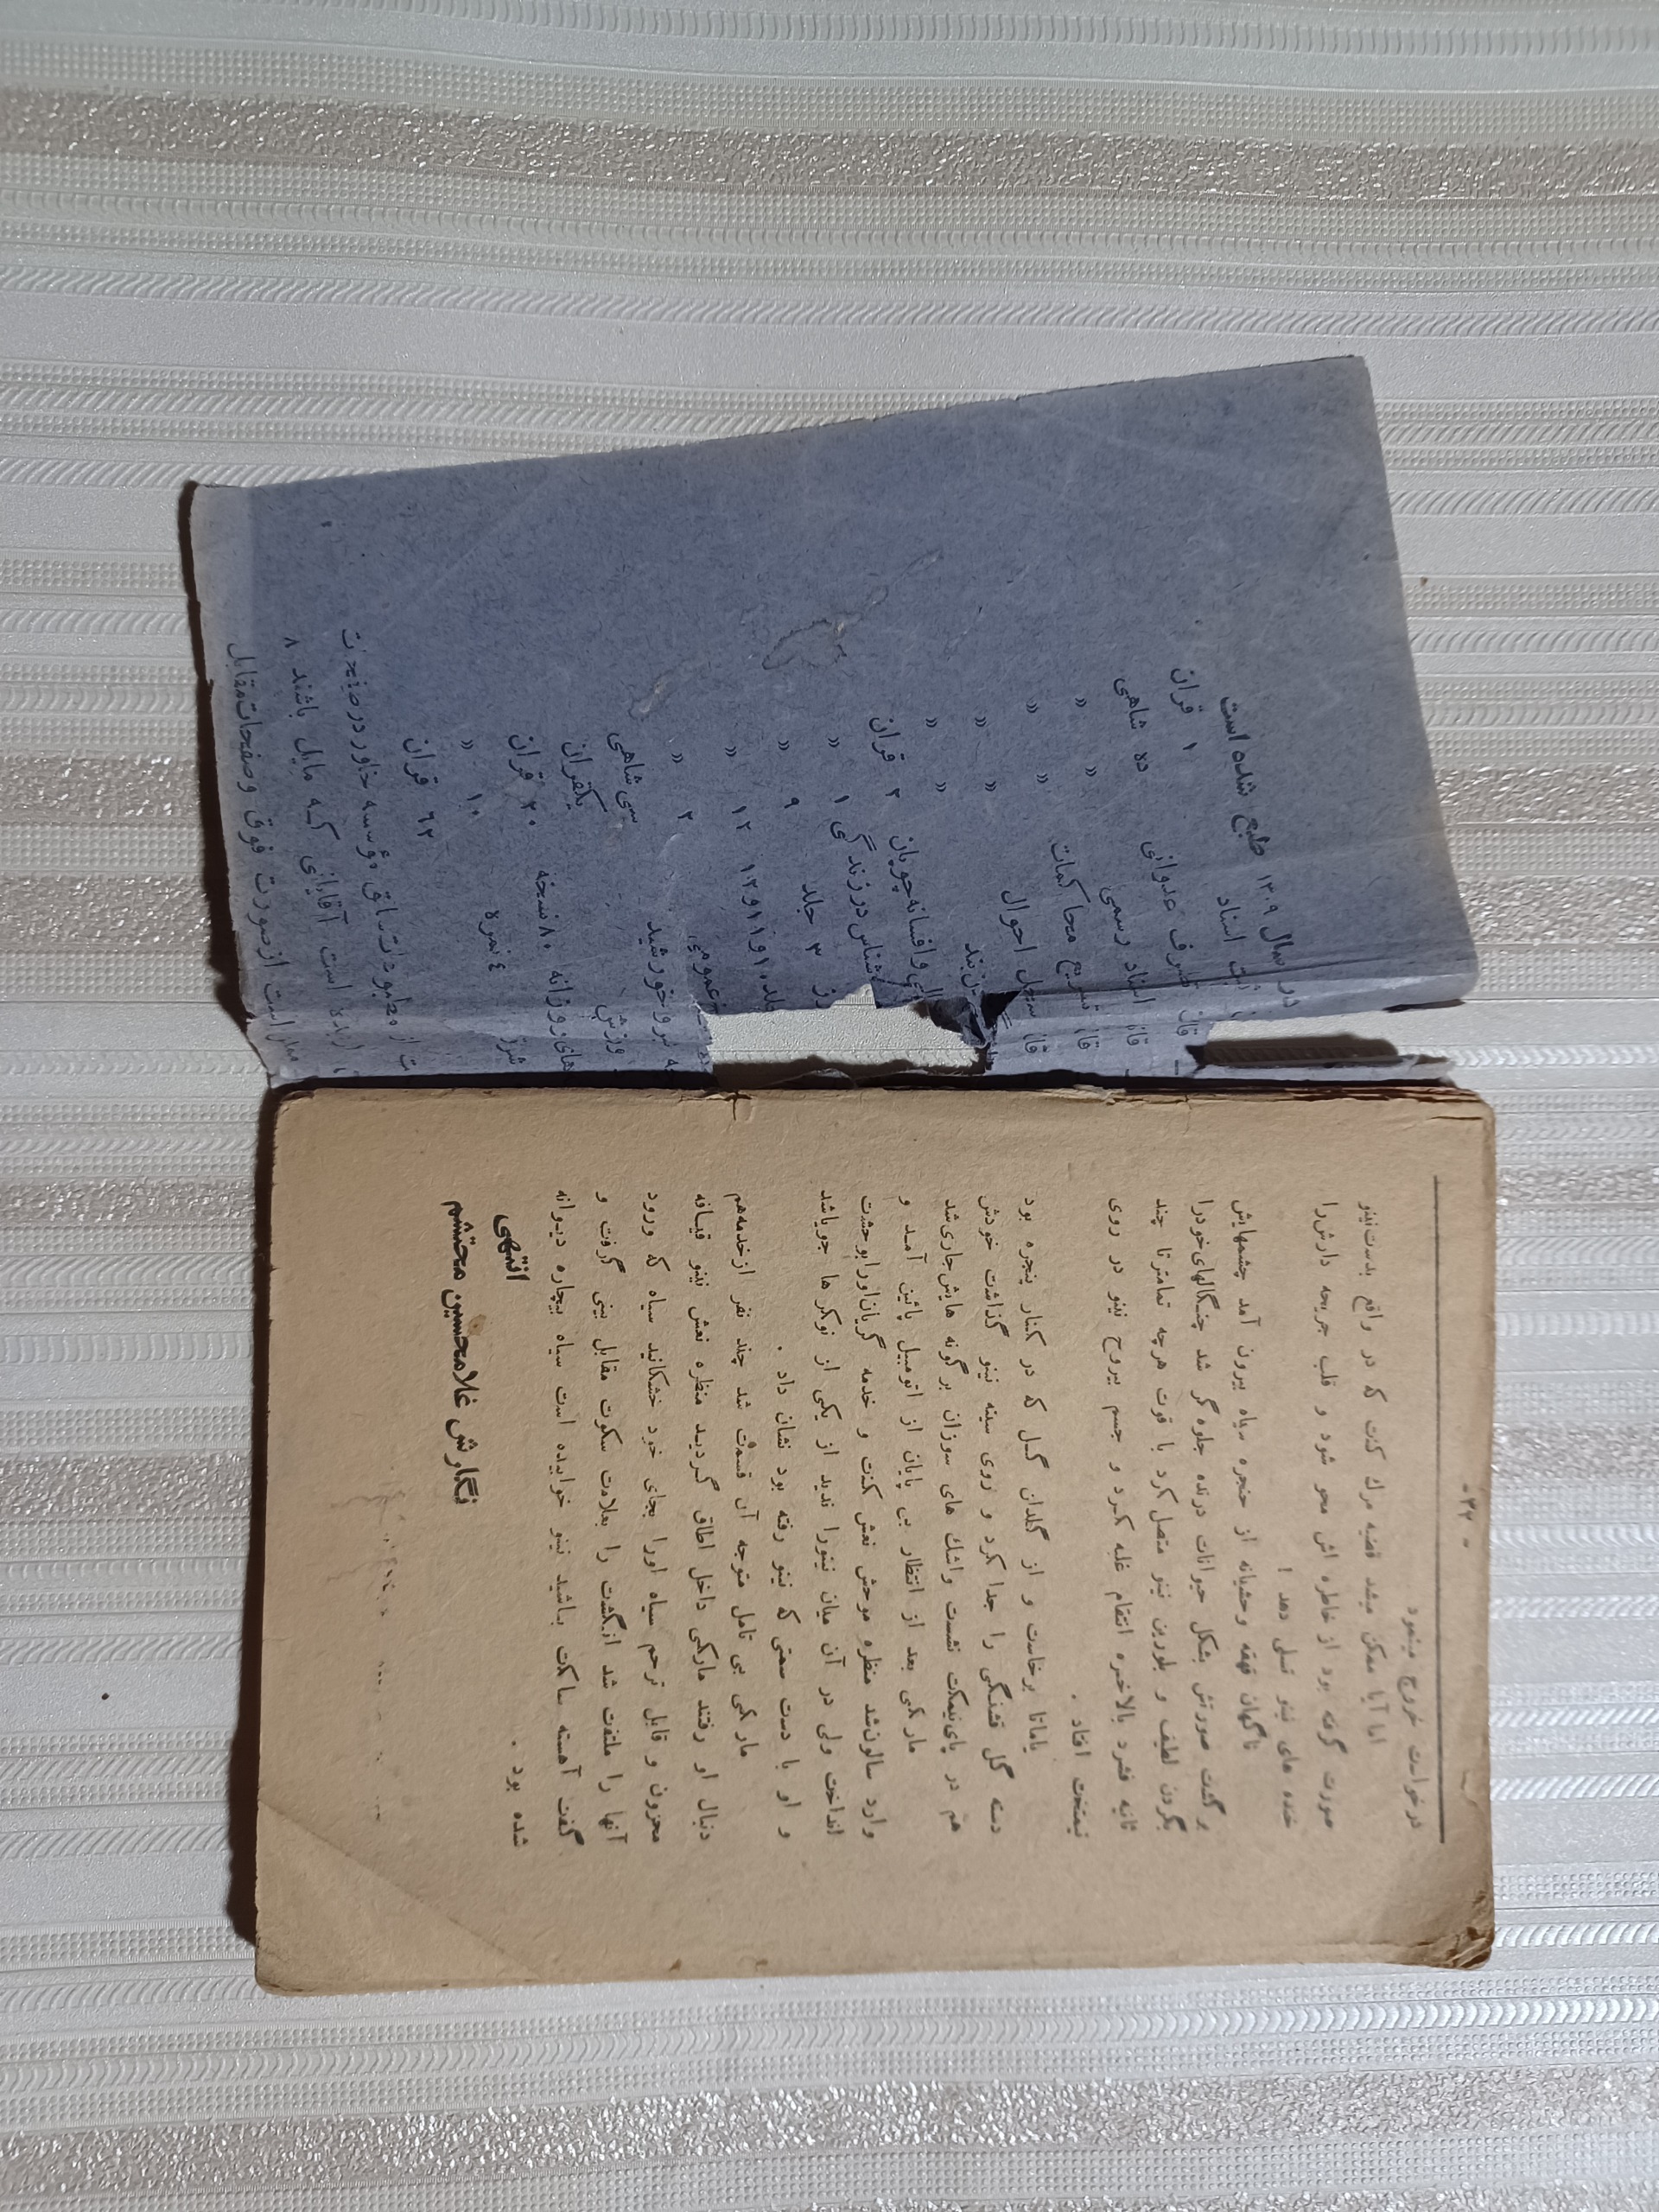 - ۳۲ -
درخواست خروج مینمود
اما آیا ممکن میشد قضیه مرك کنت که در واقع بدست نینو
صورت گرفته بود از خاطره اش محو شود و قلب جریحه دارش را
خنده های نینو تسلی دهد !
ناگهان قهقه وحشیانه از حنجره سیاه بیرون آمد چشمهایش
بر گشت صورتش بشکل حیوانات درنده جلوه گر شد چنگالهای خودرا
بگردن لطیف و بلورین نینو متصل کرد با قوت هرچه تمامتر تا چند
ثانیه فشرد بالاخره انتقام غلبه کرد و جسم بیروح نینو در روی
نیمتخت افتاد .
یاماتا برخاست و از گلدان گل که در کنار پنجره بود
دسته گل قشنگی را جدا کرد و روی سینه نینو گذاشت خودش
هم در پای نیمکت نشست و اشك های سوزان بر گونه هایش جاری شد
مارکی بعد از انتظار بی پایان از اتومبیل پائین آمد و
وارد سالون شد منظره موحش نعش کنت و خدمه گریان اورا بوحشت
انداخت ولی در آن میان نینورا ندید از یکی از نوکر ها جویا شد
و او با دست سمتی که نینو رفته بود نشان داد .
مارکی بی تامل متوجه آن قسمت شد چند نفر از خدمه هم
دنبال او رفتند مارکی داخل اطاق گردید منظره نعش نینو قیافه
محزون و قابل ترحم سیاه اورا بجای خود خشکانید سیاه که ورود
آنها را ملتفت شد انگشت را بعلامت سکوت مقابل بینی گرفت و
گفت آهسته ساکت باشید نینو خوابیده است سیاه بیچاره دیوانه
شده بود .
انتهی
نگارش غلامحسین محتشم
در سال ۱۳۰۹ طبع شده است
ثبت اسناد ۱ قران
ف عدوانی ده شاهی
اسناد رسمی » »
تسریع محاکمات » »
سجل احوال » »
» »
و افسانه چوپان ۲ قران
شناس در زندگی ۱ »
۳ جلد ۹ »
جلد ۱۰ و ۱۱ و ۱۲ ۱۲ »
عمومی ۲ »
خورشید سی شاهی
ورزش یکقران
های روزانه ۸۰ نسخه ۲۰ قران
٤ نمره ۱۰ »
۶۲ قران
ت از مطبوعات سابق مؤسسه خاور در صفحات
است آقایانی که مایل باشند ۸
است از صورت فوق و صفحات مقابل